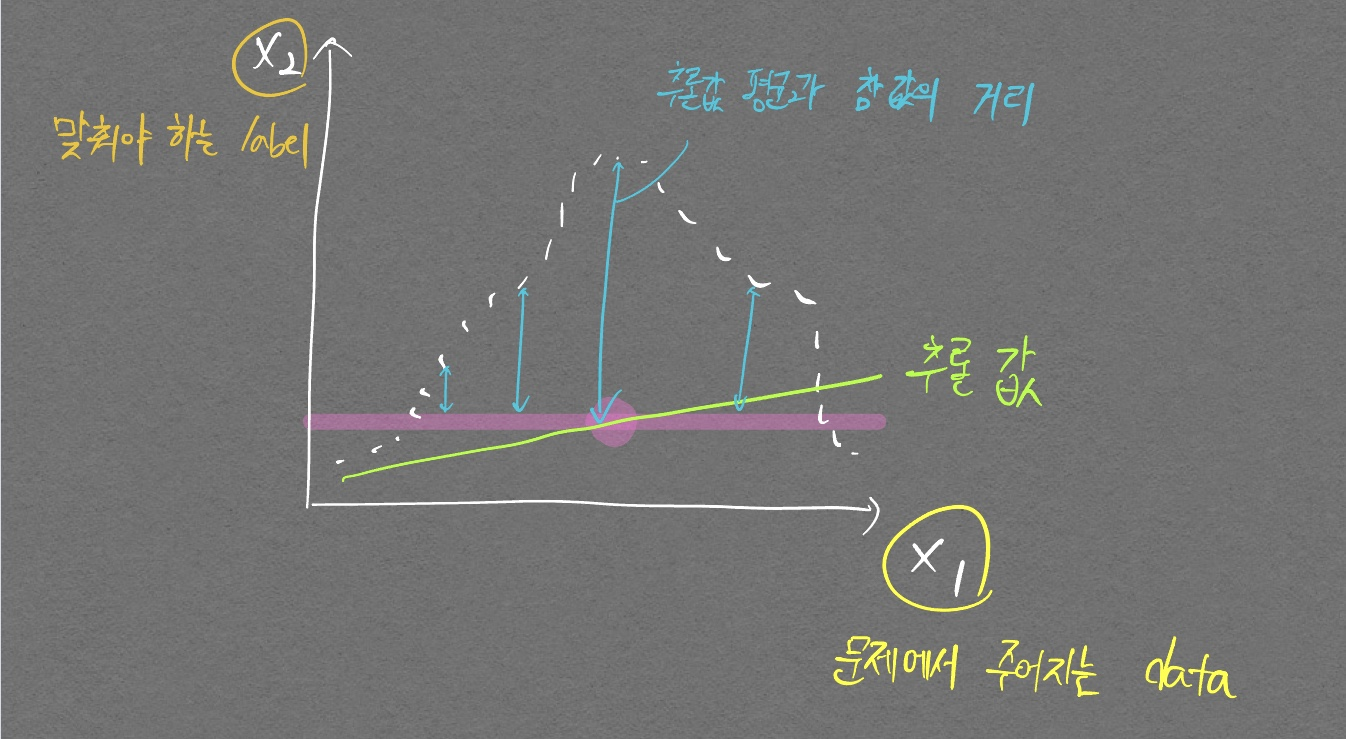 X₂
맞춰야 하는 label
추론값 평균과 참값의 거리
추론 값
X₁
문제에서 주어지는 data